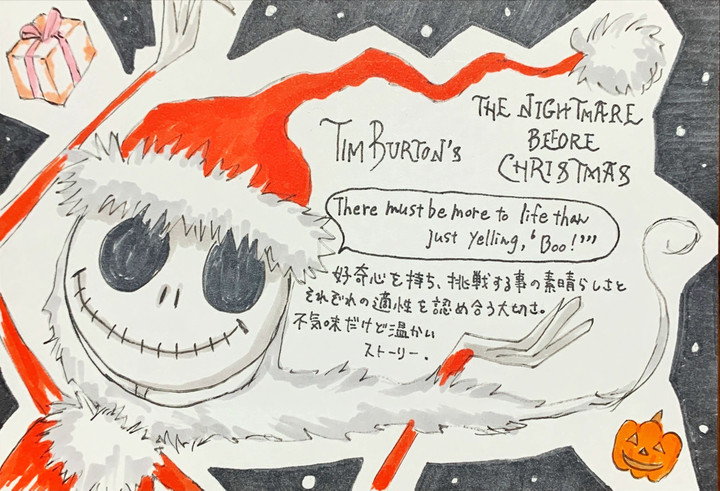 TIM BURTON'S
THE NIGHTMARE
BEFORE
CHRISTMAS
There must be more to life than
just yelling, "Boo!"''
好奇心を持ち、挑戦する事の素晴らしさと
それぞれの適性を認め合う大切さ。
不気味だけど温かい
ストーリー.